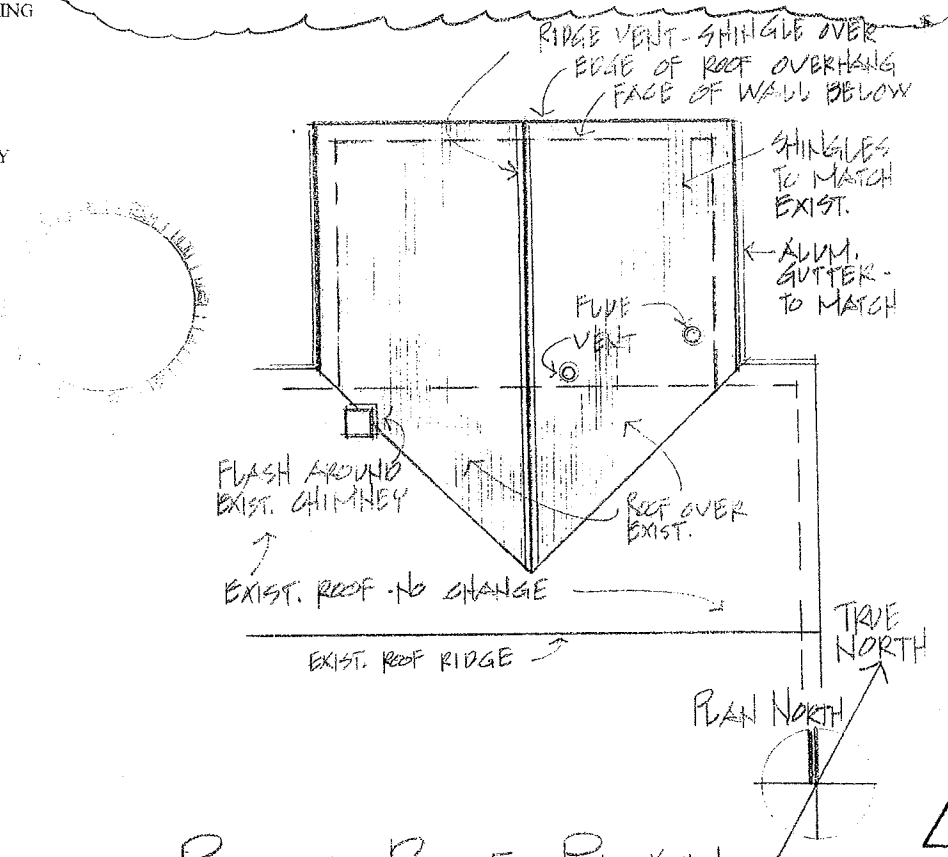 ING
Y
RIDGE VENT - SHINGLE OVER
EDGE OF ROOF OVERHANG
FACE OF WALL BELOW
SHINGLES
TO MATCH
EXIST.
ALUM.
GUTTER -
TO MATCH
FLUE
VENT
FLASH AROUND
EXIST. CHIMNEY
ROOF OVER
EXIST.
EXIST. ROOF - NO CHANGE
EXIST. ROOF RIDGE
TRUE
NORTH
PLAN NORTH